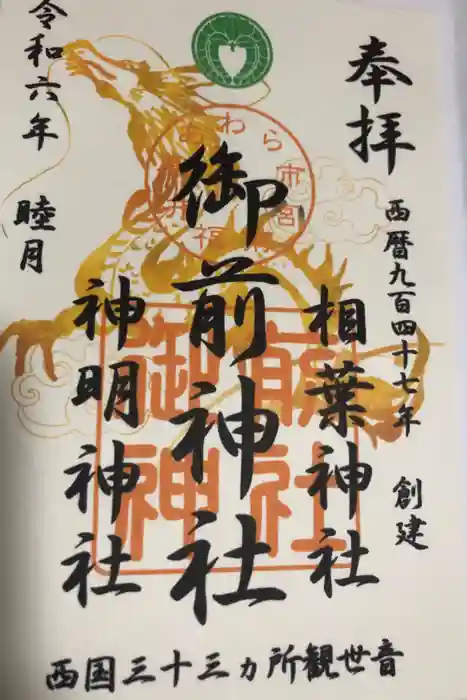 奉拝
西暦九百四十七年 創建
相葉神社
御前神社
神明神社
令和六年 睦月
西国三十三ヵ所観世音
御前神社
あわら市
福井
宮